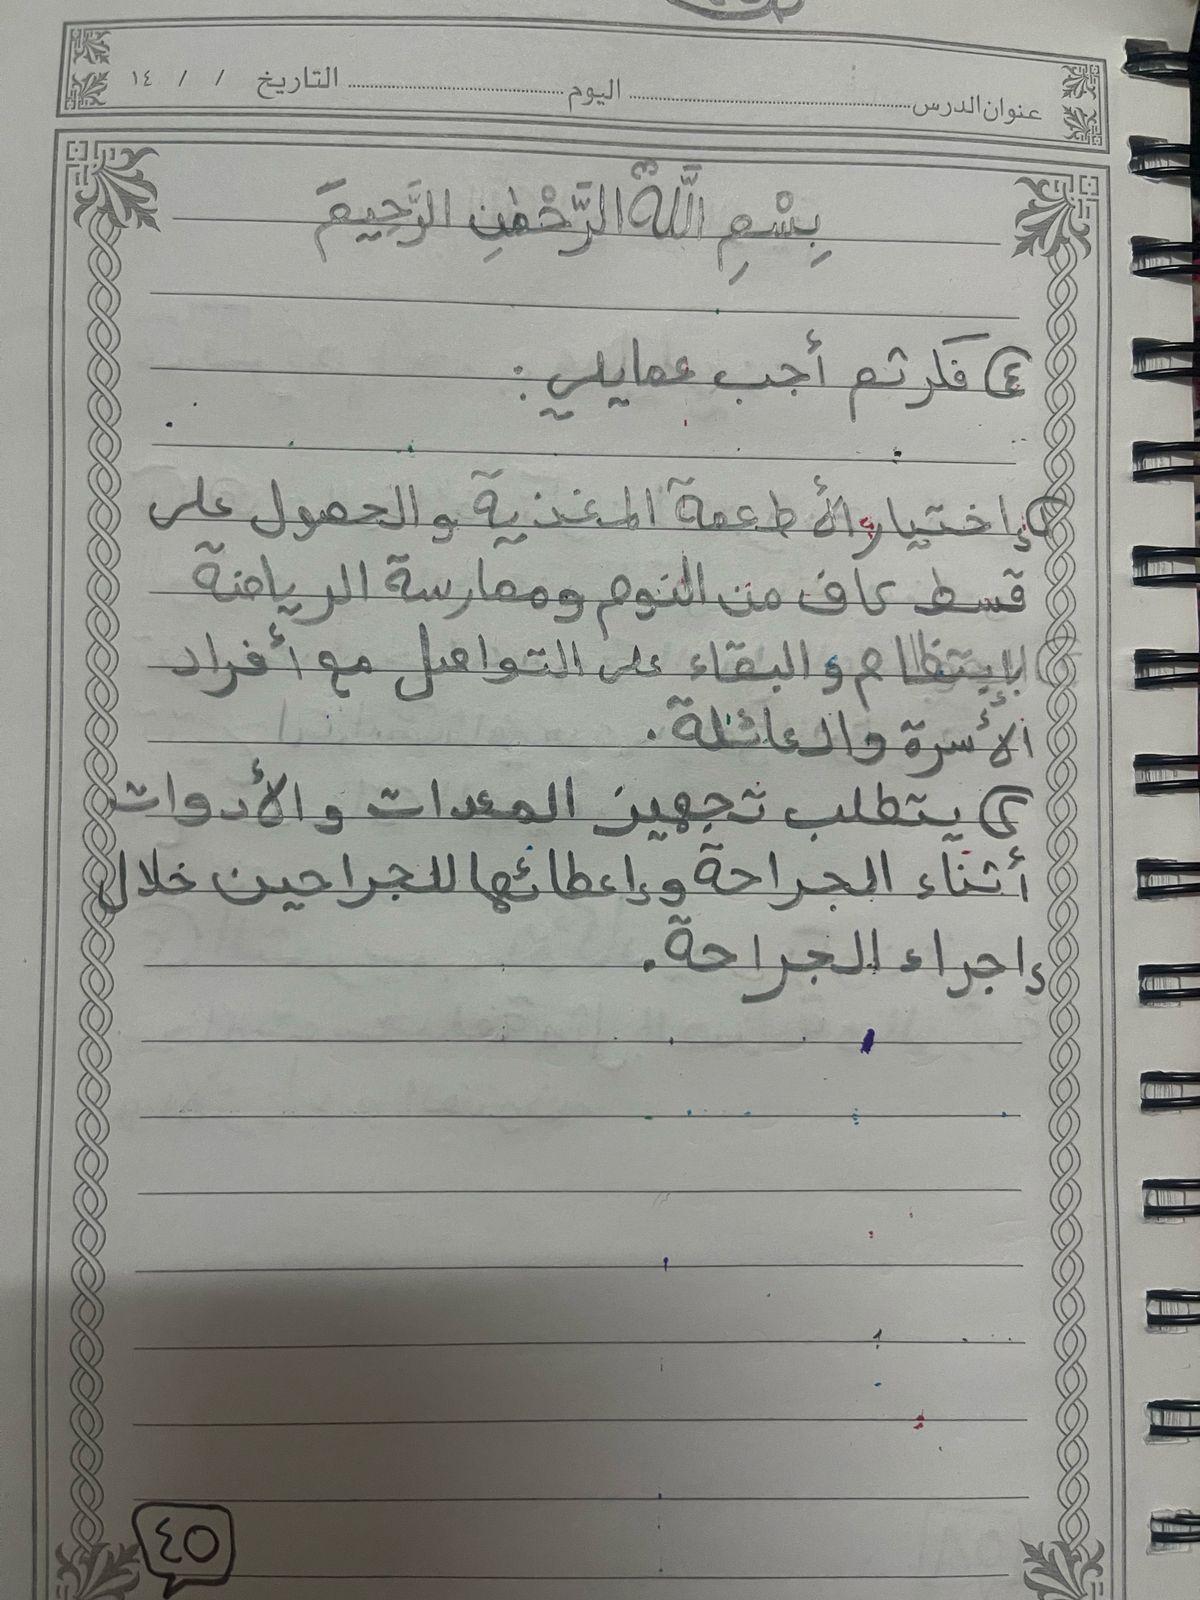 عنوان الدرس اليوم التاريخ / / ١٤
بِسْمِ اللَّهِ الرَّحْمٰنِ الرَّحِيمِ
٤) فكر ثم أجب عمايلي :
١) إختيار الأطعمة المغذية والحصول على
قسط كاف من النوم وممارسة الرياضة
بإنتظام والبقاء على التواصل مع أفراد
الأسرة والعائلة.
٢) يتطلب تجهيز المعدات والأدوات
أثناء الجراحة وإعطائها للجراحين خلال
إجراء الجراحة.
٤٥